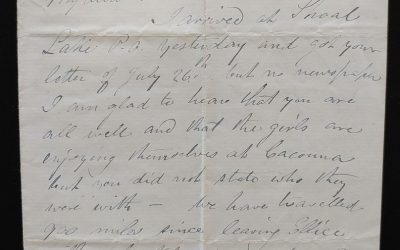 I arrived at Shoal
Lake P.O. yesterday and got your
letter of July 26th but no newspaper
I am glad to hear that you are
all well and that the girls are
enjoying themselves at Cacouna
but you did not state who they
were with – we have travelled
900 miles since leaving Ellice